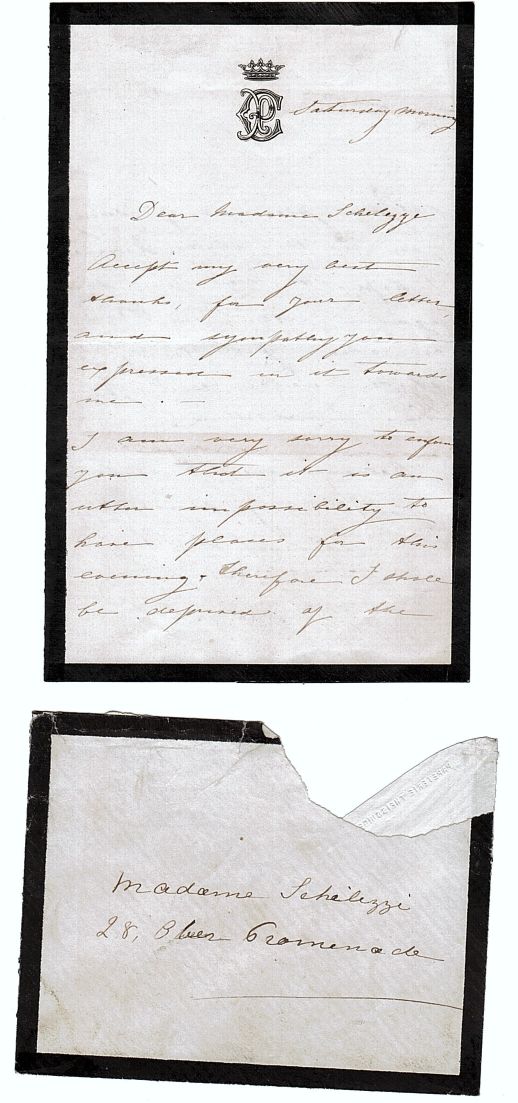 Saturday morning
Dear Madame Schelezzi
Accept my very best
thanks, for your letter,
and sympathy you
expressed in it towards
me. -
I am very sorry to inform
you that it is an
utter impossibility to
have places for this
evening. Therefore I shall
be deprived of the
Madame Schelezzi
28, Ober Promenade